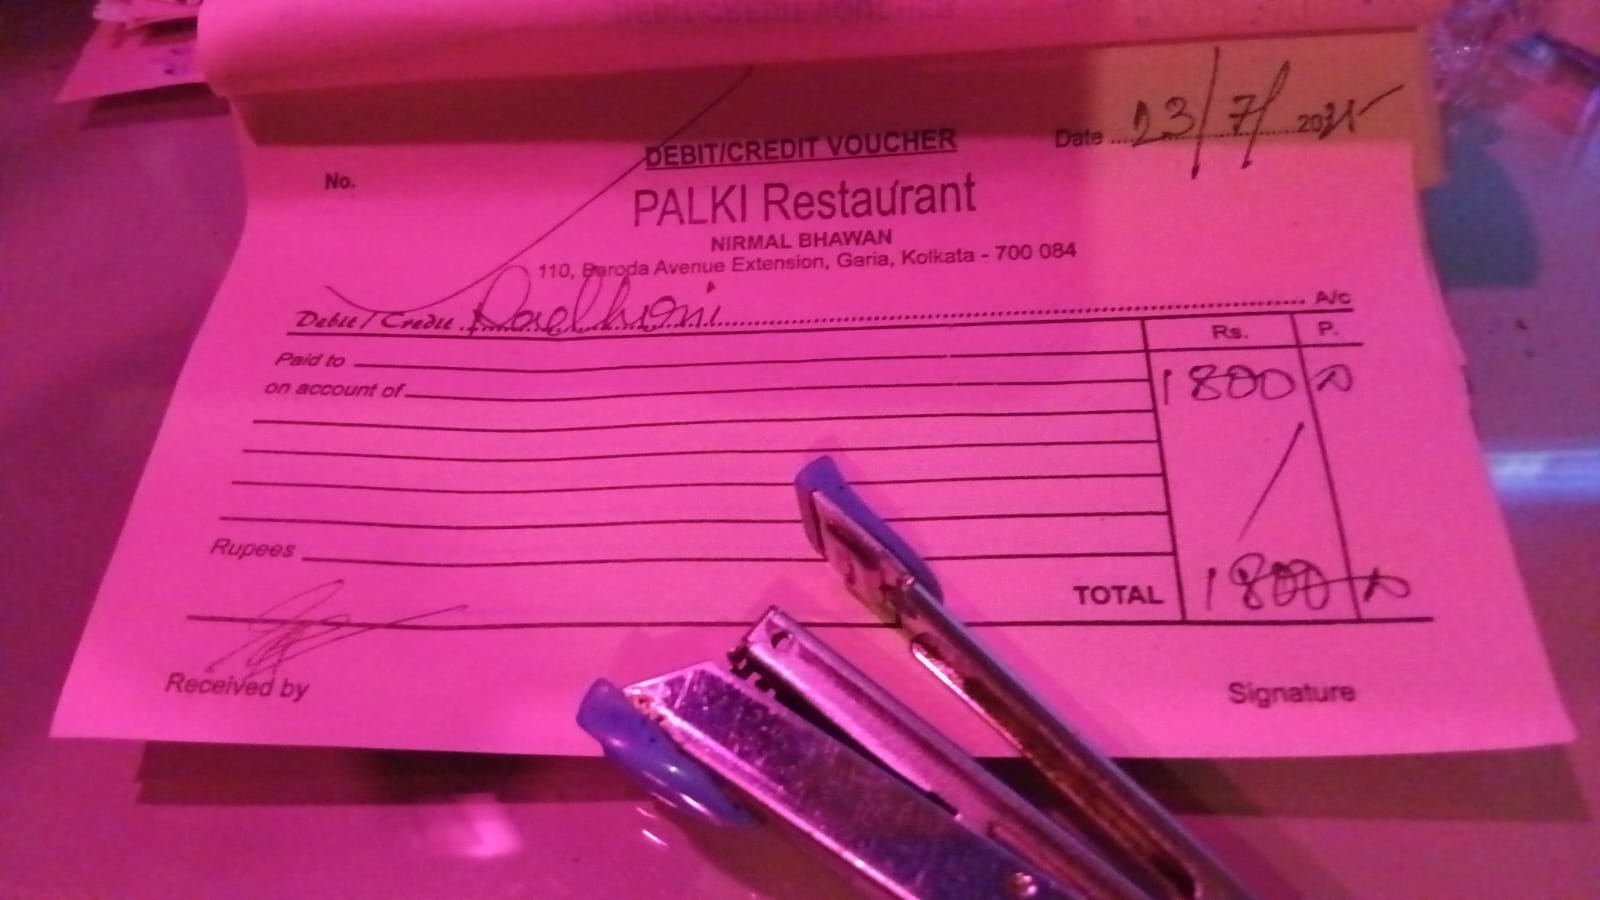 DEBIT/CREDIT VOUCHER
Date 23/7/2025
No.
PALKI Restaurant
NIRMAL BHAWAN
110, Baroda Avenue Extension, Garia, Kolkata - 700 084
Debit / Credit A/c
Rs. P.
Paid to
1800
on account of
Rupees
TOTAL 1800
Received by Signature